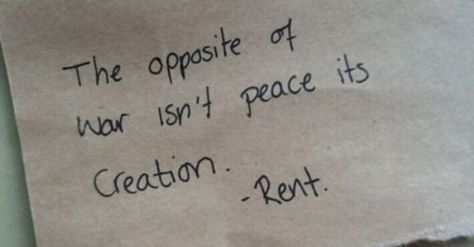 The opposite of
war isn't peace its
Creation.
-Rent.